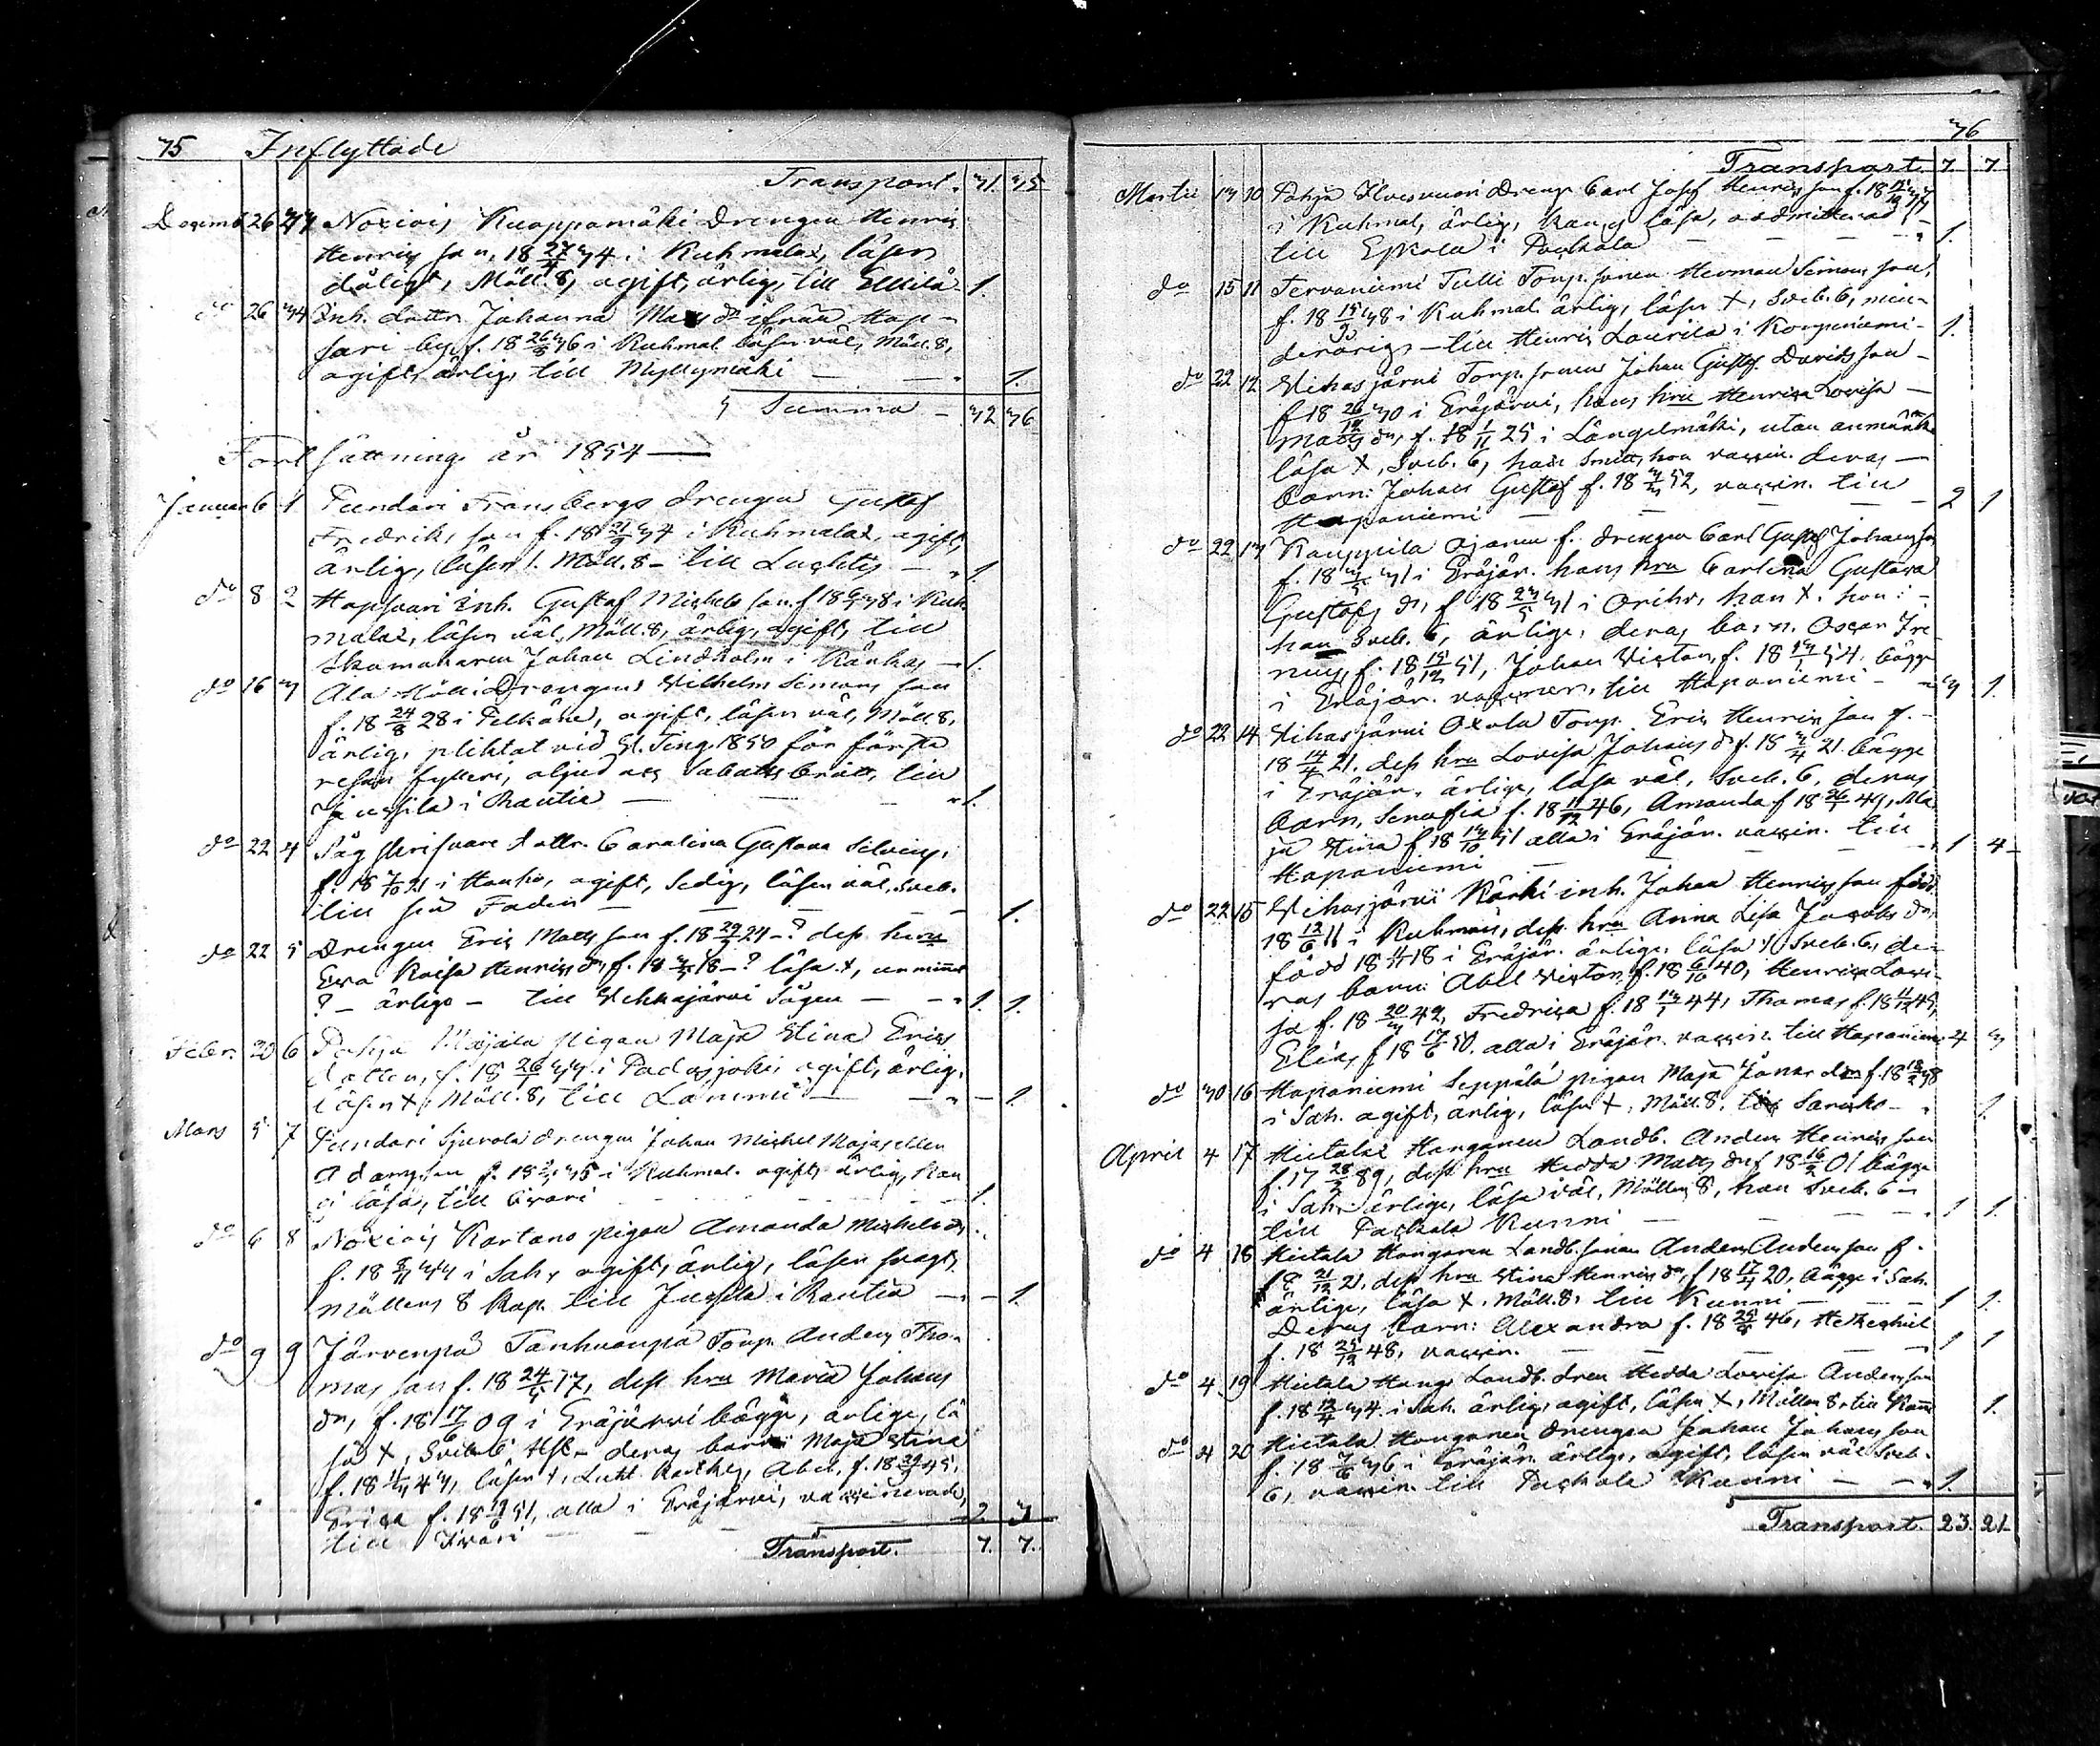 75 Inflyttade
Transport. 31. 35
Decemb 26 33 Noxiois Kuoppamäki Drengen Henric
Henrics son, 18 27/4 34 i Kuhmalax, läser
dåligt, Möll. 8, ogift, ärlig, till Eskilä 1.
do 26 34 Inh. dottr. Johanna Matts dr ifrån Hap-
sari by, f. 18 26/8 36 i Kuhmal. läser väl, Möll. 8,
ogift, ärlig, till Myllymäki — 1.
Summa — 32 36
Fortsättning år 1854
Januar 6 1. Pundari Fransbergs drengen Gustaf
Fredrics son f. 18 21/9 34 i Kuhmalax, ogift,
ärlig, läser 1. Möll. 8 – till Luchtis — 1.
do 8 2 Hapsuari Inh. Gustaf Michels son f. 18 38 i Kuh
malax, läser väl, Möll. 8, ärlig, ogift, till
Skomakaren Johan Lindholm i Kånkas — 1.
do 16 3 Ala Mölli Drengen Vilhelm Simons son
f. 18 24/8 28 i Pelkäne, ogift, läser väl, Möll. 8,
ärlig, pliktat vid V. Ting. 1850 för första
resan fylleri, oljud och Sabattsbrott, till
Jussila i Rautia — 1.
do 22 4 Såg skrifvare dottr. Carolina Gustava
f. 18 7/10 21 i Hauho, ogift, ledig, läser väl, Sveb.
till sin Fader — 1.
do 22 5 Drengen Eric Matts son f. 18 29/3 24 – ? dess hru
Eva Kaisa Henrics dr, f. 18 18 – ? läsa +,
? – ärliga – till Vehkajärvi Sågen — 1. 1.
Febr. 20 6 Pohja Uljala pigan Maja Stina Erics
dotter, f. 18 26/1 33 i Padasjoki, ogift, ärlig,
läser +, Möll. 8, till Lammi — 1.
Mars 5 7 Pundari Sjuvola drengen Johan Michel
Adamsson f. 18 35 i Kuhmal. ogift, ärlig, kan
ej läsa, till — 1.
do 6 8 Noxiois Kartano pigan Amanda Michels dr
f. 18 8/11 34 i Sah, ogift, ärlig, läser svagt,
Möllers 8 Kap. till Jussila i Rautia — 1.
do 9 9 Järvenpä Tanhuanpä Torp. Anders Tho-
mas son f. 18 24/5 17, dess hru Maria Johans
dr, f. 18 17/6 09 i Eräjärvi bägge, ärliga, lä
sa +, Svib 6 – deras barn: Maja Stina
f. 18 43, läser +, Luth. Abel, f. 18 29/9 45,
Erica f. 18 51, alla i Eräjärvi, vaccinerade, 2 3
till
Transport. 7. 7.
76
Transport. 7. 7
Martii 13 10 Pohja Ilvesvuori Dreng. Carl Josef Henrics son f. 18 33
i Kuhmal, ärlig, kan ej läsa, oadmitterad
till Eskola i Pachkala — 1.
do 15 11 Tervaniemi Tulli Torp. sonen Herman Simons son,
f. 18 15/9 38 i Kuhmal. ärlig, läser +, Sveb. 6, min-
derårig – till Henric Laurila i Korpiniemi 1.
do 22 12 Vihasjärvi Torp. sonen Johan Gustaf Davids son
f. 18 26/12 30 i Eräjärvi, hans hru Henrica Lovisa
Matts dr, f. 18 1/11 25 i Längelmäki, utan anmärk.
läsa +, Sveb. 6, han smitt, hon vaccin. deras —
barn: Johan Gustaf f. 18 52, vaccin. till
Haponiemi — 2 1
do 22 13 Kauppila Ojanen f. drengen Carl Gustaf Johans son
f. 18 31 i Eräjär. hans hru Carolina Gustava
Gustafs dr, f. 18 23/5 31 i Orihv, han +. hon :
han Sveb. 6, ärliga, deras barn. Oscar Ire
neus, f. 18 15/12 51, Johan Victor, f. 18 13/1 54. bägge
i Eräjär. vaccner, till Haponiemi – 3 1.
do 22 14 Vihasjärvi Oxala Torp. Eric Henrics son f.
18 14/4 21, dess hru Lovisa Johans dr f. 18 3/4 21. bägge
i Eräjär. ärliga, läsa väl, Sveb. 6, deras
barn, Serafia f. 18 11/12 46, Amanda f. 18 26/1 49, Ma
ja Stina f. 18 13/10 51 alla i Eräjär. vaccin. till
Haponiemi — 1 4
do 22 15 Vihasjärvi Kärki inh. Johan Henrics son född
18 12/6 11 i Kuhmois, dess hru Anna Lisa Jacobs dr,
född 18 18 i Eräjär. ärliga, läsa +, Sveb. 6, de-
ras barn: Abel Victor, f. 18 6/10 40, Henrica Lovi-
sa f. 18 20/3 42, Fredrica f. 18 13/1 44, Thomas f. 18 11/12 45,
Elias f. 18 17/6 50. alla i Eräjär. vaccin. till Haponiemi 4 3
do 30 16 Haponiemi Seppälä pigan Maja Jonas dr f. 18 38
i Sah. ogift, ärlig, läser +, Möll. 8. till — 1.
April 4 17 Hietalax Honganen Landb. Anders Henrics son
f. 17 28/2 89, dess hru Hedda Matts dr f. 18 16/2 01 bägge
i Sah. ärliga, läsa väl, Möllers 8, han Sveb. 6 –
till Pachkala Kunni — 1 1.
do 4 18 Hietala Honganen Landb. sonen Anders Anders son f.
18 21/12 21, dess hru Stina Henrics dr, f. 18 17/3 20, bägge i Sah.
ärliga, läsa +. Möll. 8. till Kunni — 1 1.
Deras barn: Alexandra f. 18 25/4 46, Heskehiel
f. 18 25/12 48, vaccin. — 1 1
do 4 19 Hietala Hong. Landb. dren Hedda Lovisa Anders
f. 18 12/4 34. i Sah. ärlig, ogift, läser +, Möllers 8. till Kunni 1.
do 4 20 Hietala Honganen drengen Johan Johans son
f. 18 7/6 36 i Eräjär. ärlig, ogift, läser väl Sveb.
6, vaccin. till Pachkala Kunni — 1.
Transport. 23. 21.